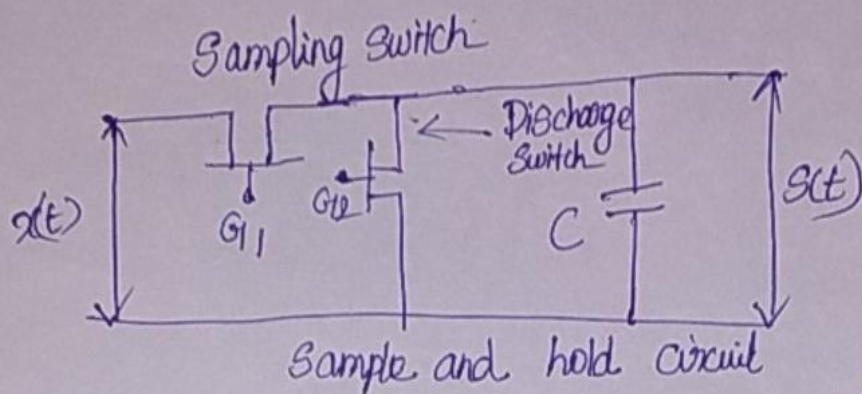 Sampling Switch
Discharge
Switch
x(t)
G1
G2
C
S(t)
Sample and hold circuit